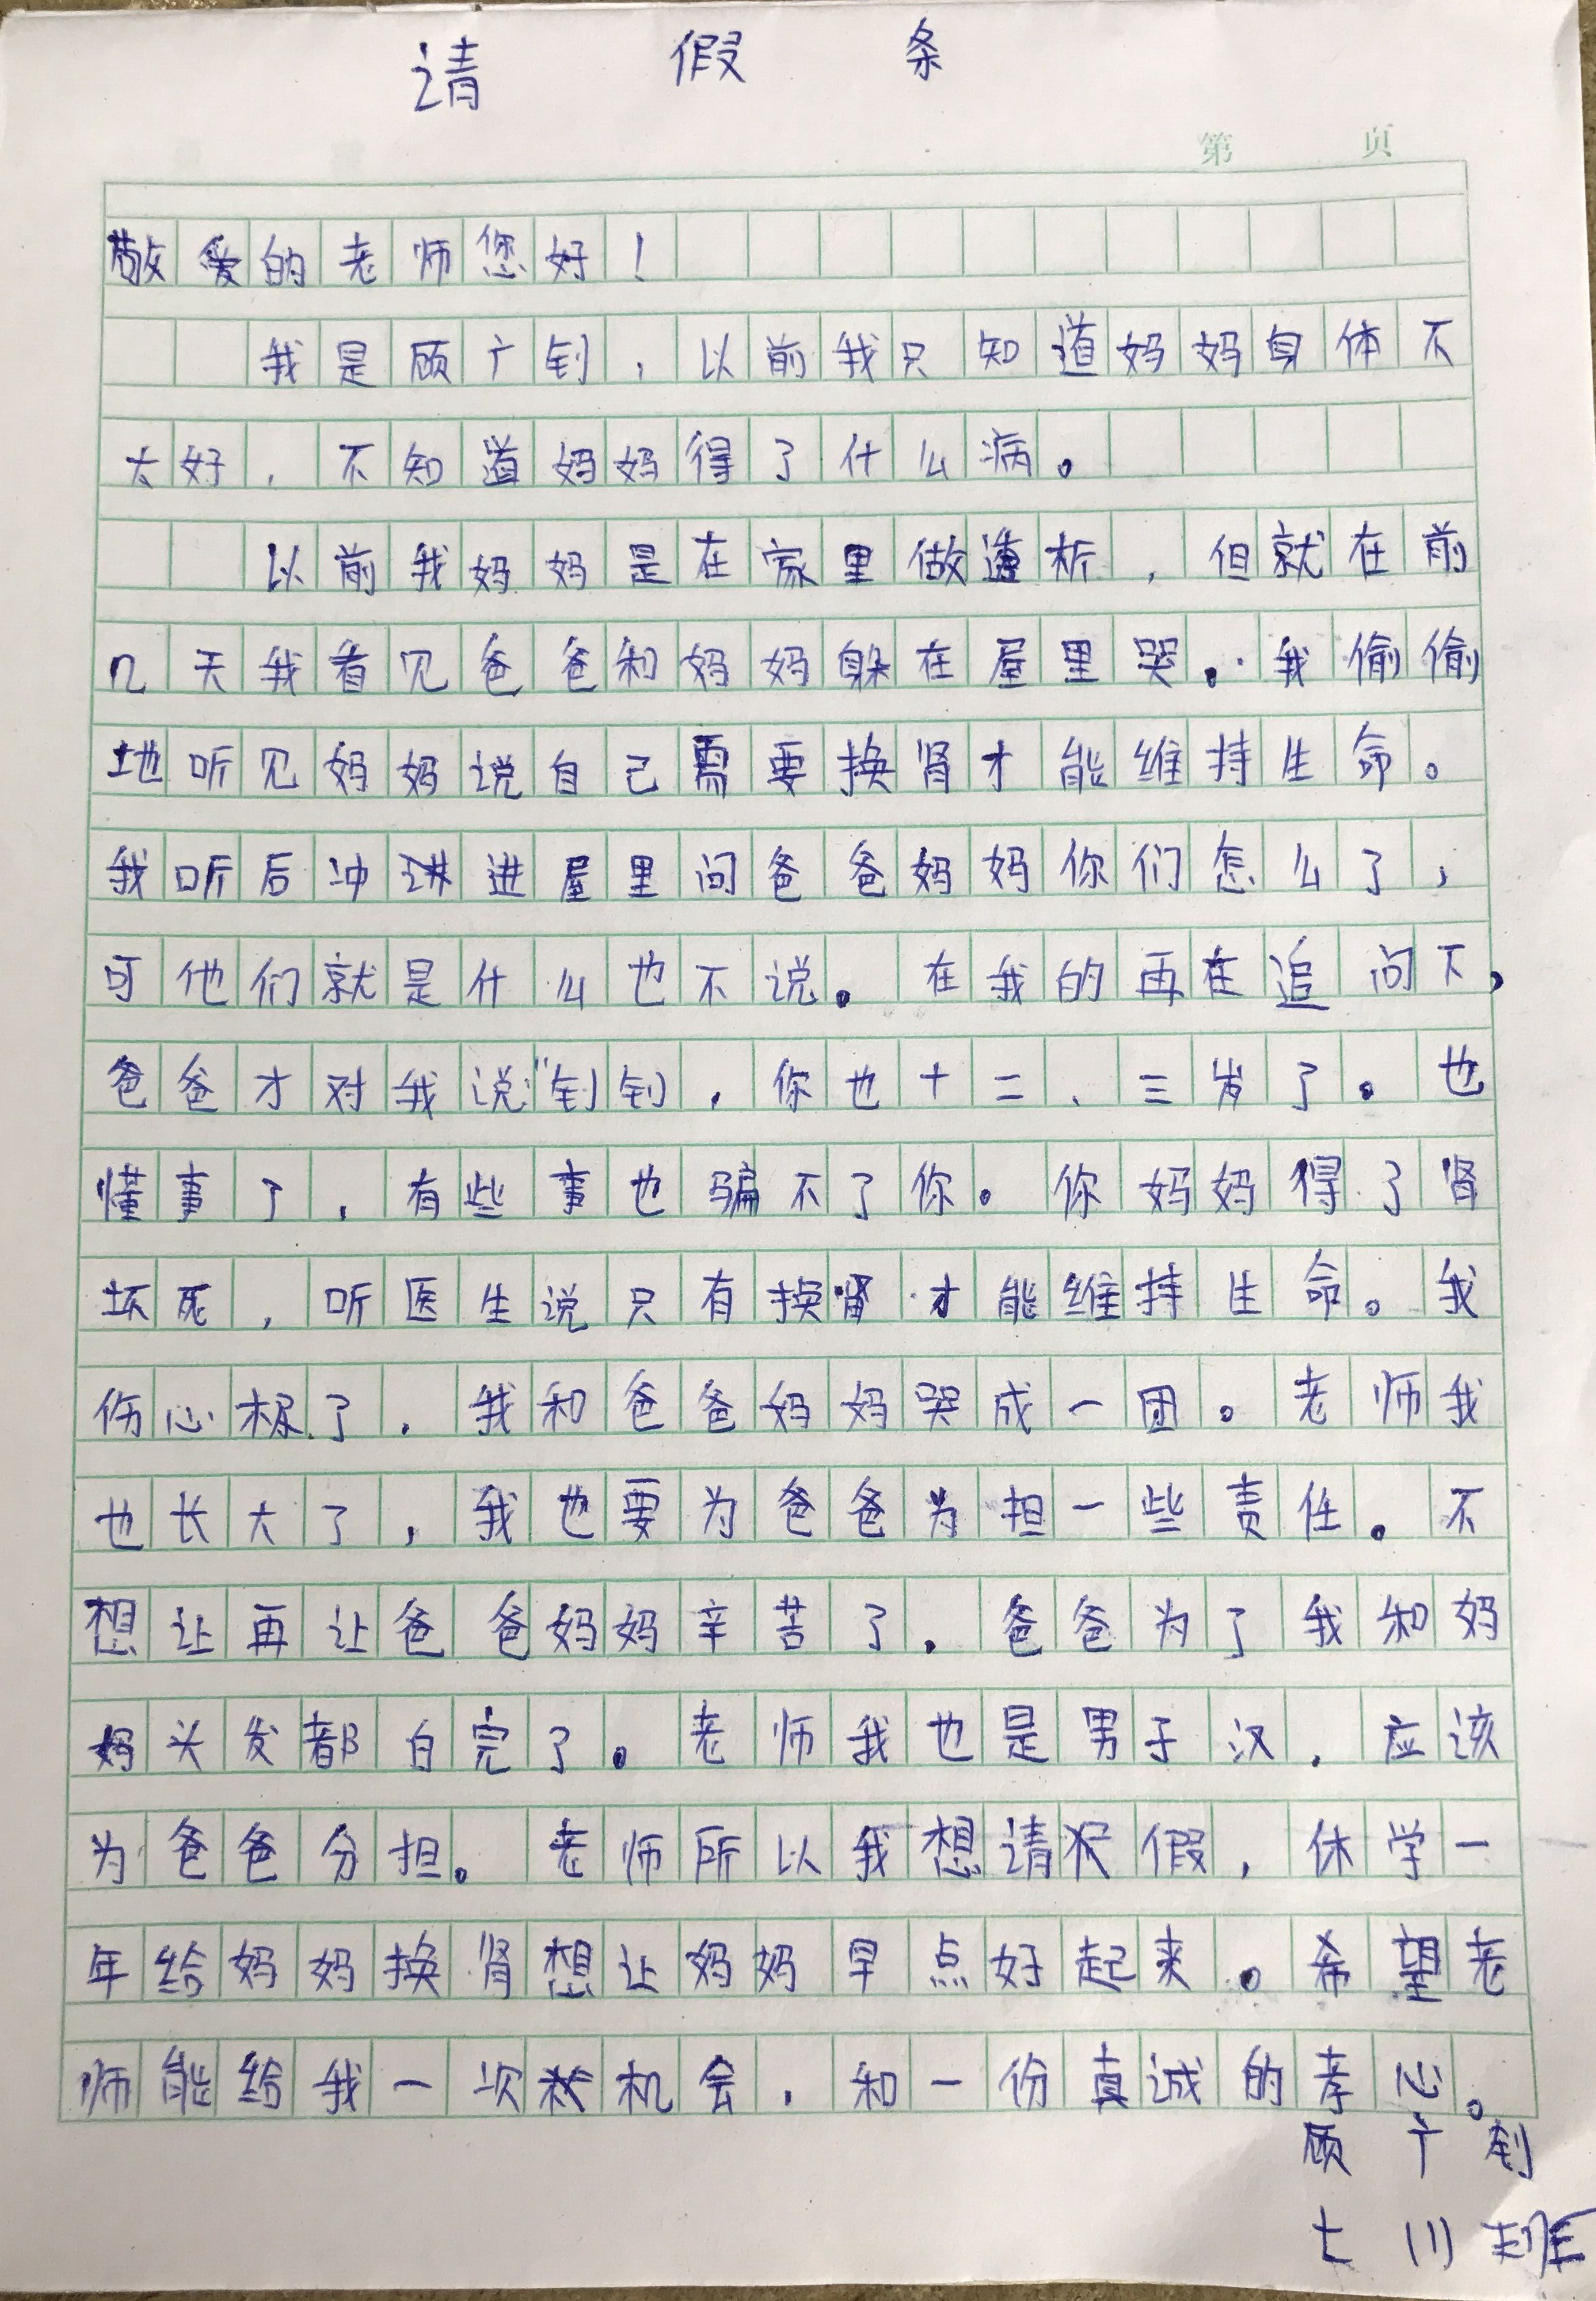 请假条
第 页
敬爱的老师您好！
我是顾广钊，以前我只知道妈妈身体不
太好，不知道妈妈得了什么病。
以前我妈妈是在家里做透析，但就在前
几天我看见爸爸和妈妈躲在屋里哭。我偷偷
地听见妈妈说自己需要换肾才能维持生命。
我听后冲进屋里问爸爸妈妈你们怎么了，
可他们就是什么也不说。在我的再在追问下，
爸爸才对我说“钊钊，你也十二、三岁了。也
懂事了，有些事也骗不了你。你妈妈得了肾
坏死，听医生说只有换肾才能维持生命。我
伤心极了，我和爸爸妈妈哭成一团。老师我
也长大了，我也要为爸爸为担一些责任。不
想让再让爸爸妈妈辛苦了，爸爸为了我和妈
妈头发都白完了。老师我也是男子汉，应该
为爸爸分担。老师所以我想请假，休学一
年给妈妈换肾想让妈妈早点好起来。希望老
师能给我一次机会，和一份真诚的孝心。
顾广钊
七(1)班